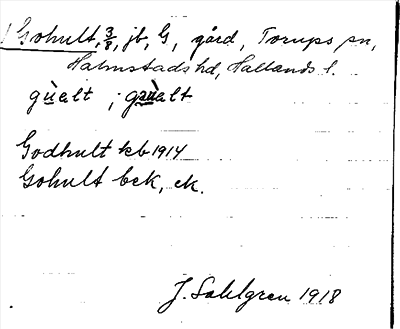 Gohult, 3/8, jb, G, gård, Torups sn,
Halmstads hd, Hallands l.
gùalt ; gauàlt
Godhult kb 1914
Gohult bek, ek.
J. Sahlgren 1918